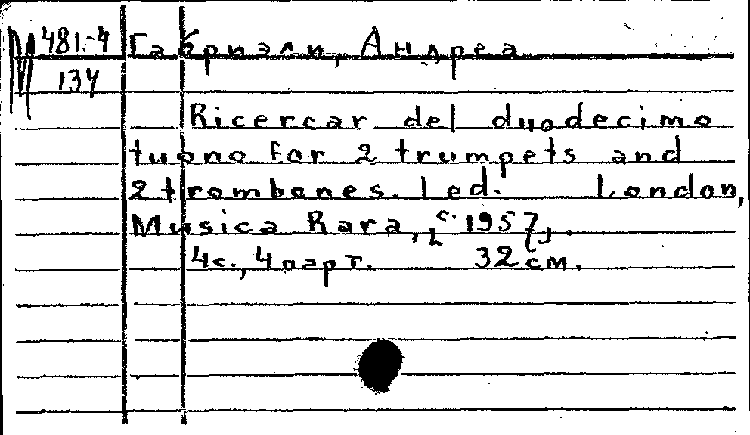 М 481-4 Габриэли, Андреа
134
Ricercar del duodecimo
tuono for 2 trumpets and
2 trombones. [ed. London,
Musica Rara, [c. 1957].
4с., 4 парт. 32 см.